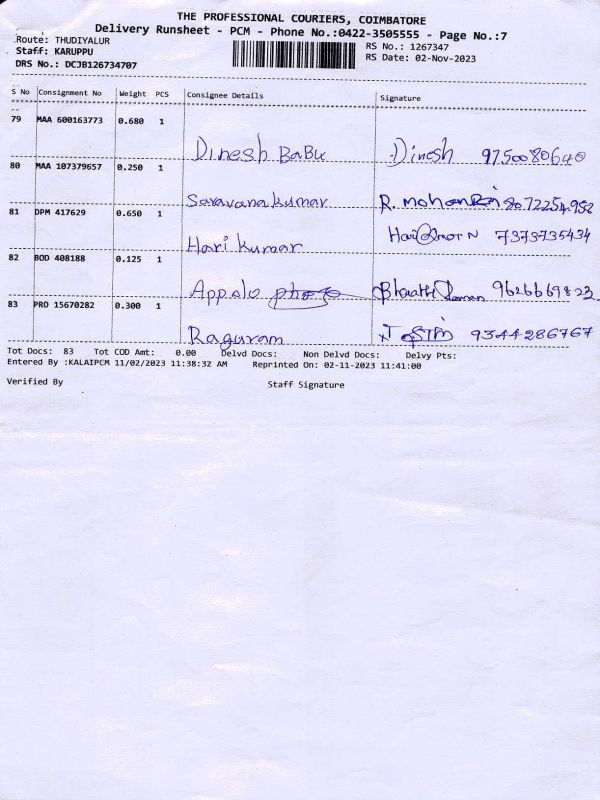 THE PROFESSIONAL COURIERS, COIMBATORE
Delivery Runsheet - PCM - Phone No.:0422-3505555 - Page No.:7
Route: THUDIYALUR
RS No.: 1267347
Staff: KARUPPU
RS Date: 02-Nov-2023
DRS No.: DCJB126734707
S No Consignment No Weight PCS Consignee Details Signature
79 MAA 600163773 0.680 1
Dinesh Babu Dinesh 9750080640
80 MAA 107379657 0.250 1
Saravanakumar R. Mohan 8072254952
81 DPM 417629 0.650 1
Hari kumar 7373735434
82 BOD 408188 0.125 1
Appolo photo 9626669823
83 PRO 15670282 0.300 1
Raguram 9344286767
Tot Docs: 83 Tot COD Amt: 0.00 Delvd Docs: Non Delvd Docs: Delvy Pts:
Entered By :KALAIPCM 11/02/2023 11:38:32 AM Reprinted On: 02-11-2023 11:41:00
Verified By Staff Signature